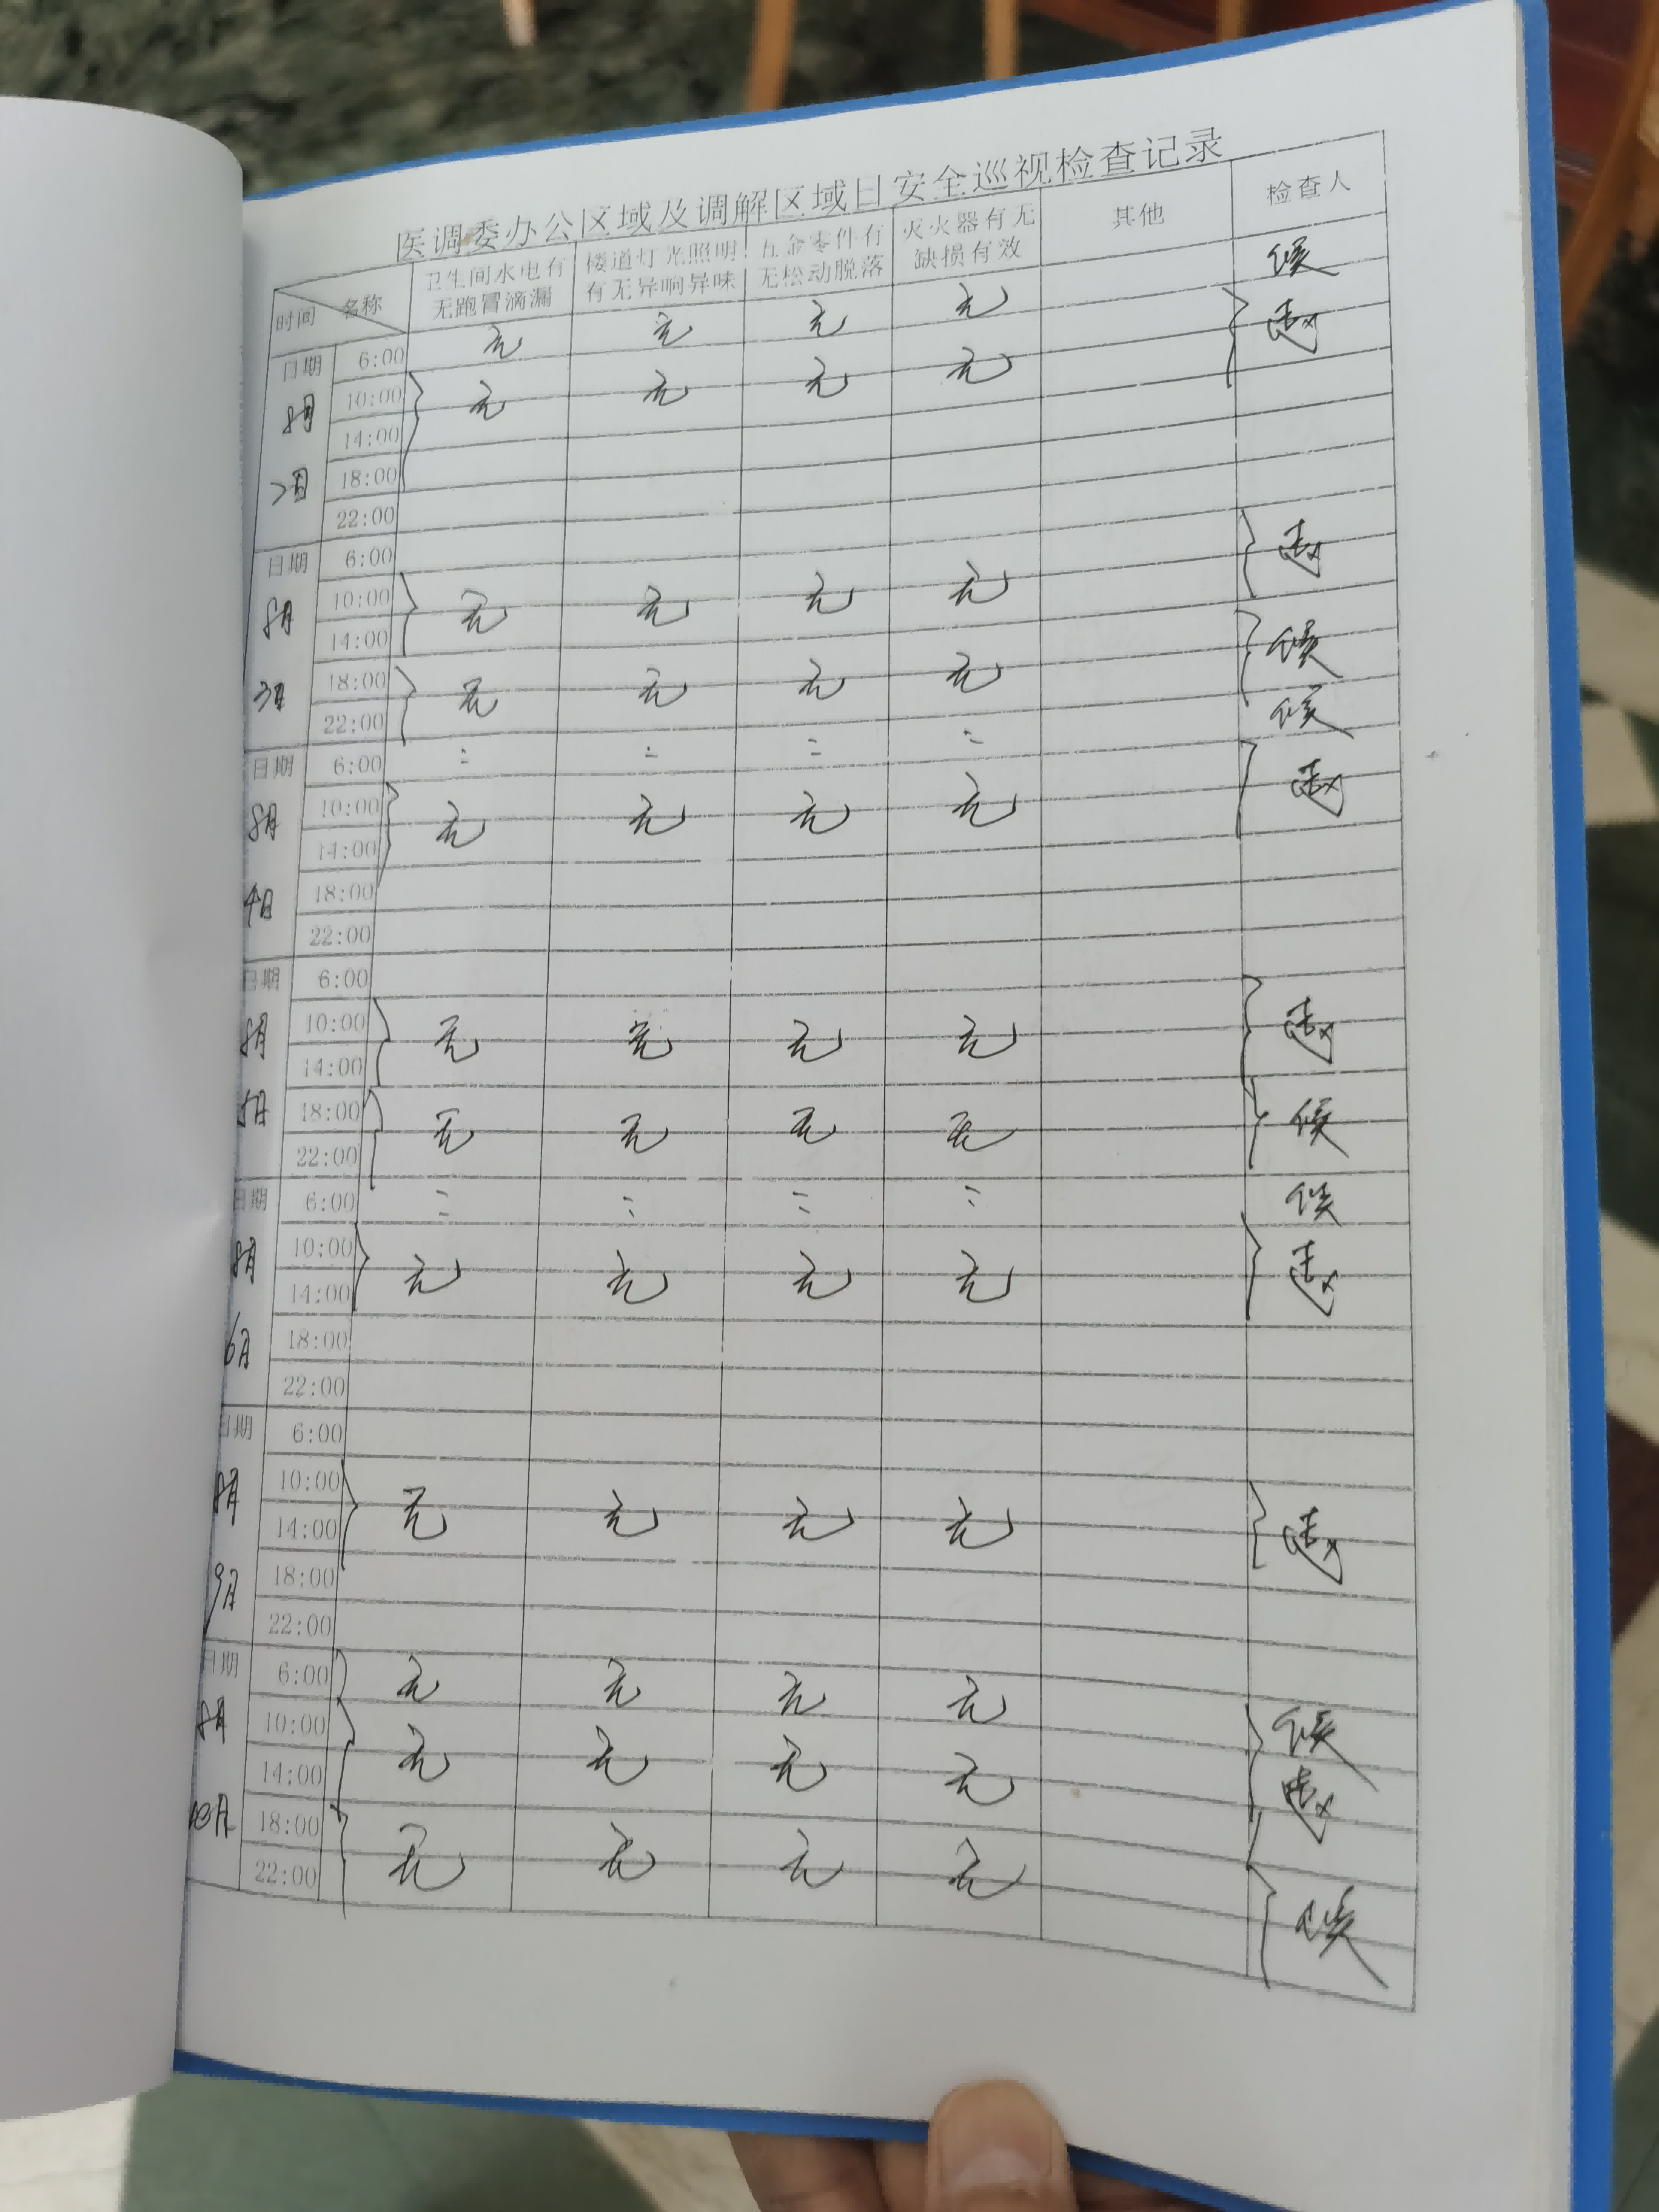 医调委办公区域及调解区域日安全巡视检查记录
时间 名称 卫生间水电有无跑冒滴漏 楼道灯光照明有无异响异味 五金零件有无松动脱落 灭火器有无缺损有效 其他 检查人
日期 6:00 无 无 无 无 侯
8月 10:00 无 无 无 无 赵
14:00
2日 18:00
22:00
日期 6:00
8月 10:00 无 无 无 无 赵
14:00
3日 18:00 无 无 无 无 侯
22:00
日期 6:00 侯
8月 10:00 无 无 无 无 赵
14:00
4日 18:00
22:00
日期 6:00
8月 10:00 无 无 无 无 赵
14:00
5日 18:00 无 无 无 无 侯
22:00
日期 6:00 侯
8月 10:00 无 无 无 无 赵
14:00
6日 18:00
22:00
日期 6:00
8月 10:00 无 无 无 无 赵
14:00
9日 18:00
22:00
日期 6:00 无 无 无 无 侯
8月 10:00 无 无 无 无 赵
14:00
10日 18:00 无 无 无 无 侯
22:00